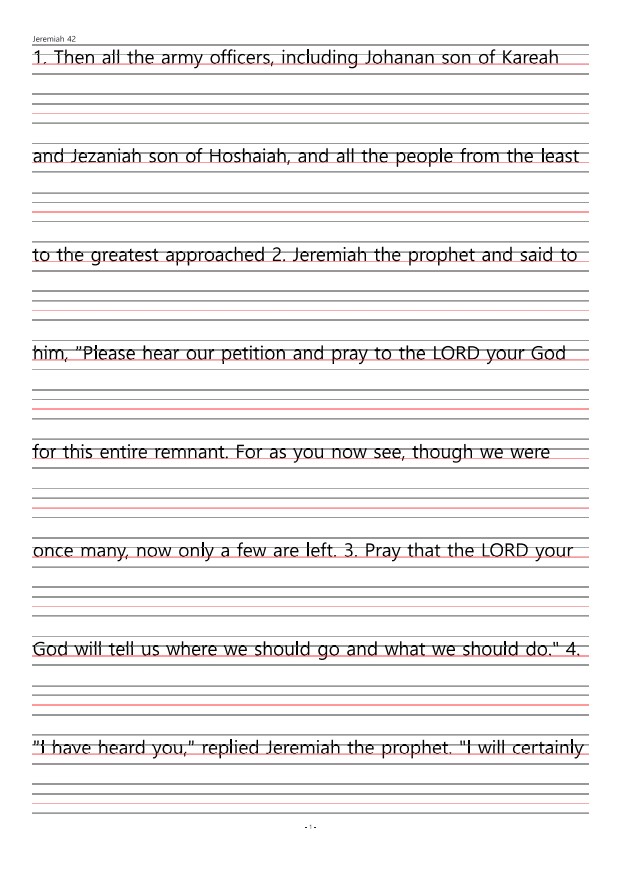 Jeremiah 42
1. Then all the army officers, including Johanan son of Kareah
and Jezaniah son of Hoshaiah, and all the people from the least
to the greatest approached 2. Jeremiah the prophet and said to
him, "Please hear our petition and pray to the LORD your God
for this entire remnant. For as you now see, though we were
once many, now only a few are left. 3. Pray that the LORD your
God will tell us where we should go and what we should do." 4.
"I have heard you," replied Jeremiah the prophet. "I will certainly
- 1 -